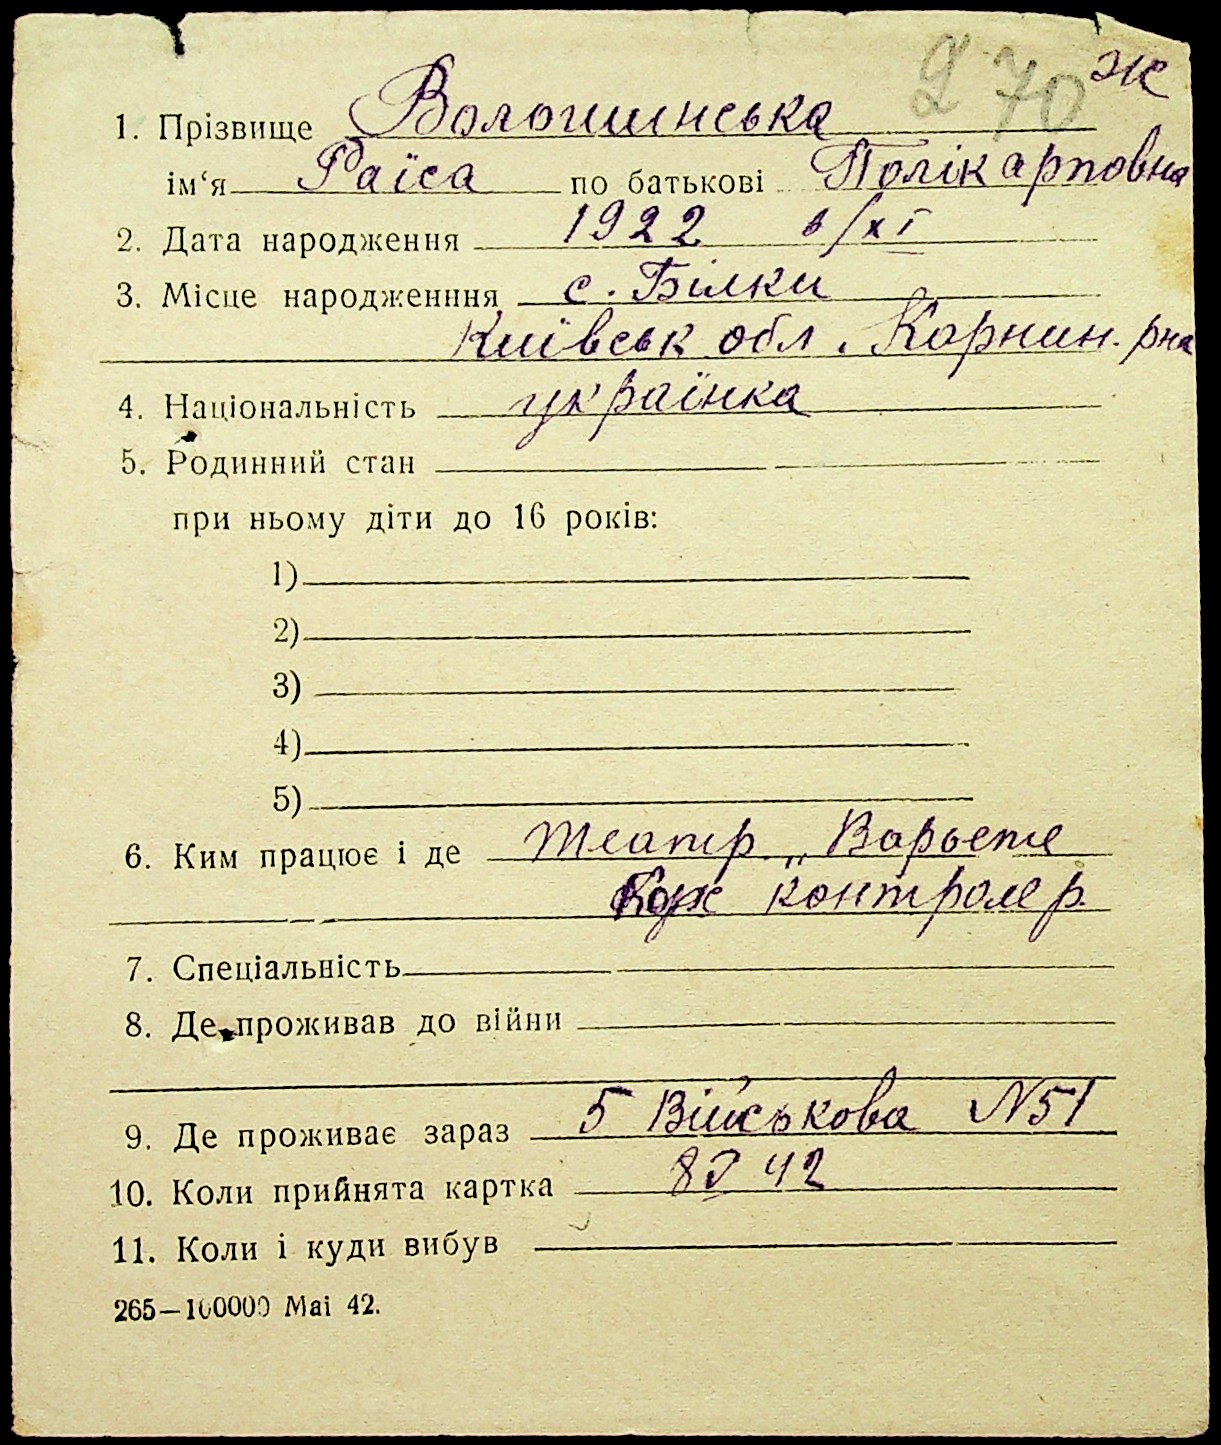 270 ж
1. Прізвище Вологшинська
ім‘я Раїса по батькові Полікарповна
2. Дата народження 1922 в/хІ
3. Місце народженння с. Білки
Київськ обл. Корнин. рна
4. Національність українка
5. Родинний стан
при ньому діти до 16 років:
1)
2)
3)
4)
5)
6. Ким працює і де театр „Варьете
контролер.
7. Спеціальність
8. Де проживав до війни
9. Де проживає зараз 5 Військова №51
10. Коли прийнята картка 42
11. Коли і куди вибув
265—100000 Mai 42.